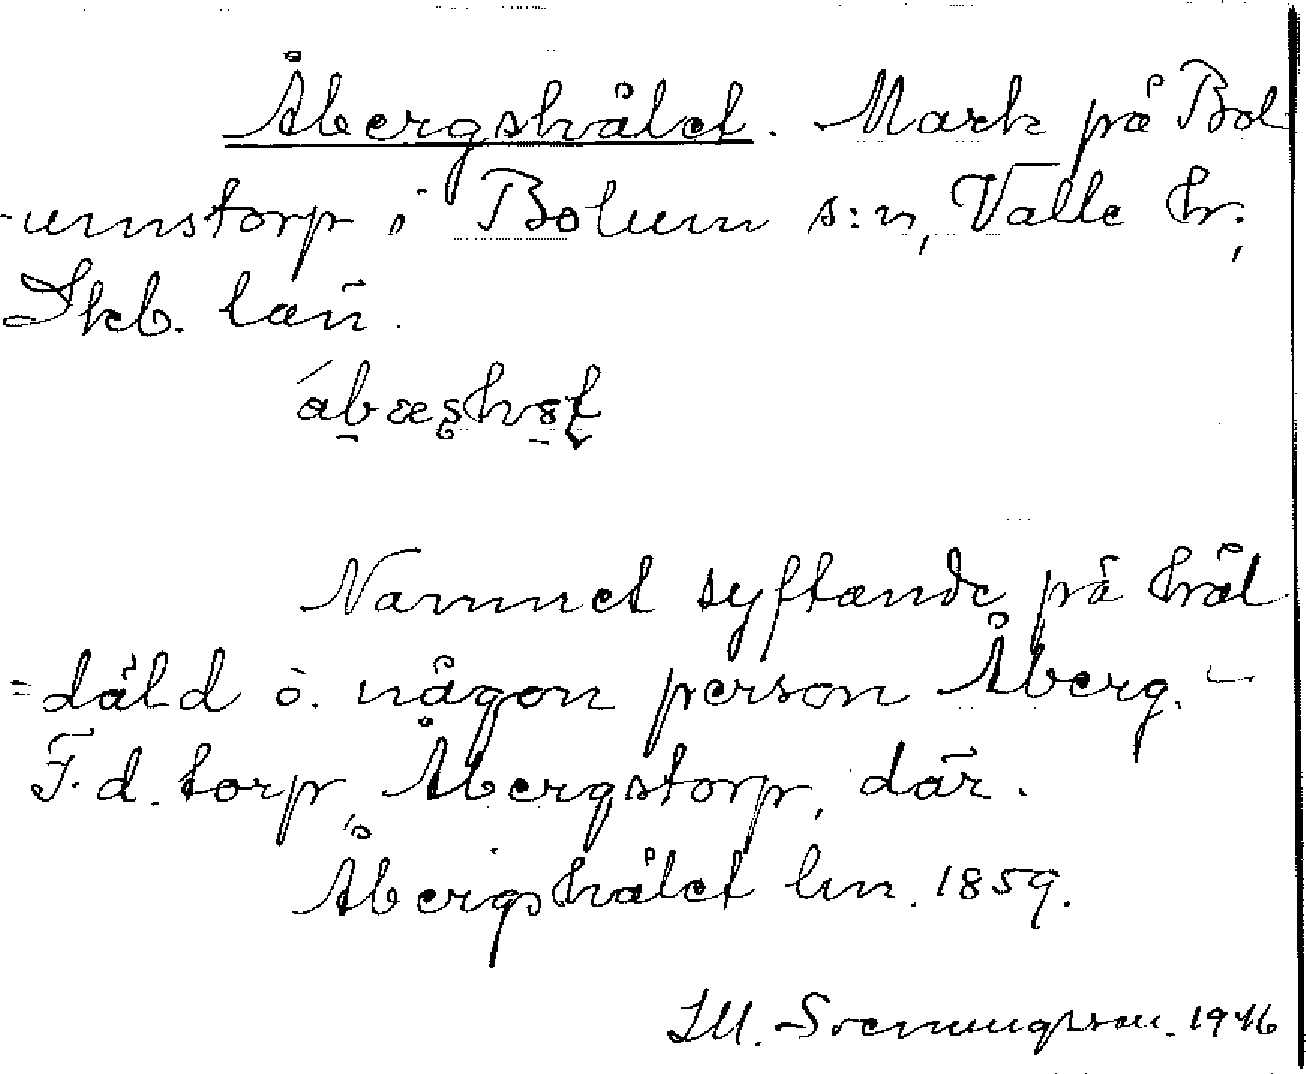 Åbergshålet. Mark på Bol
-umstorp i Bolum s:n, Valle hr;
Skb. län.
Namnet syftande på hål
=däld o. någon person Åberg. -
F.d. torp, Åbergstorp, där.
Åbergshålet lm. 1859.
S. M. Svenungsson. 1946